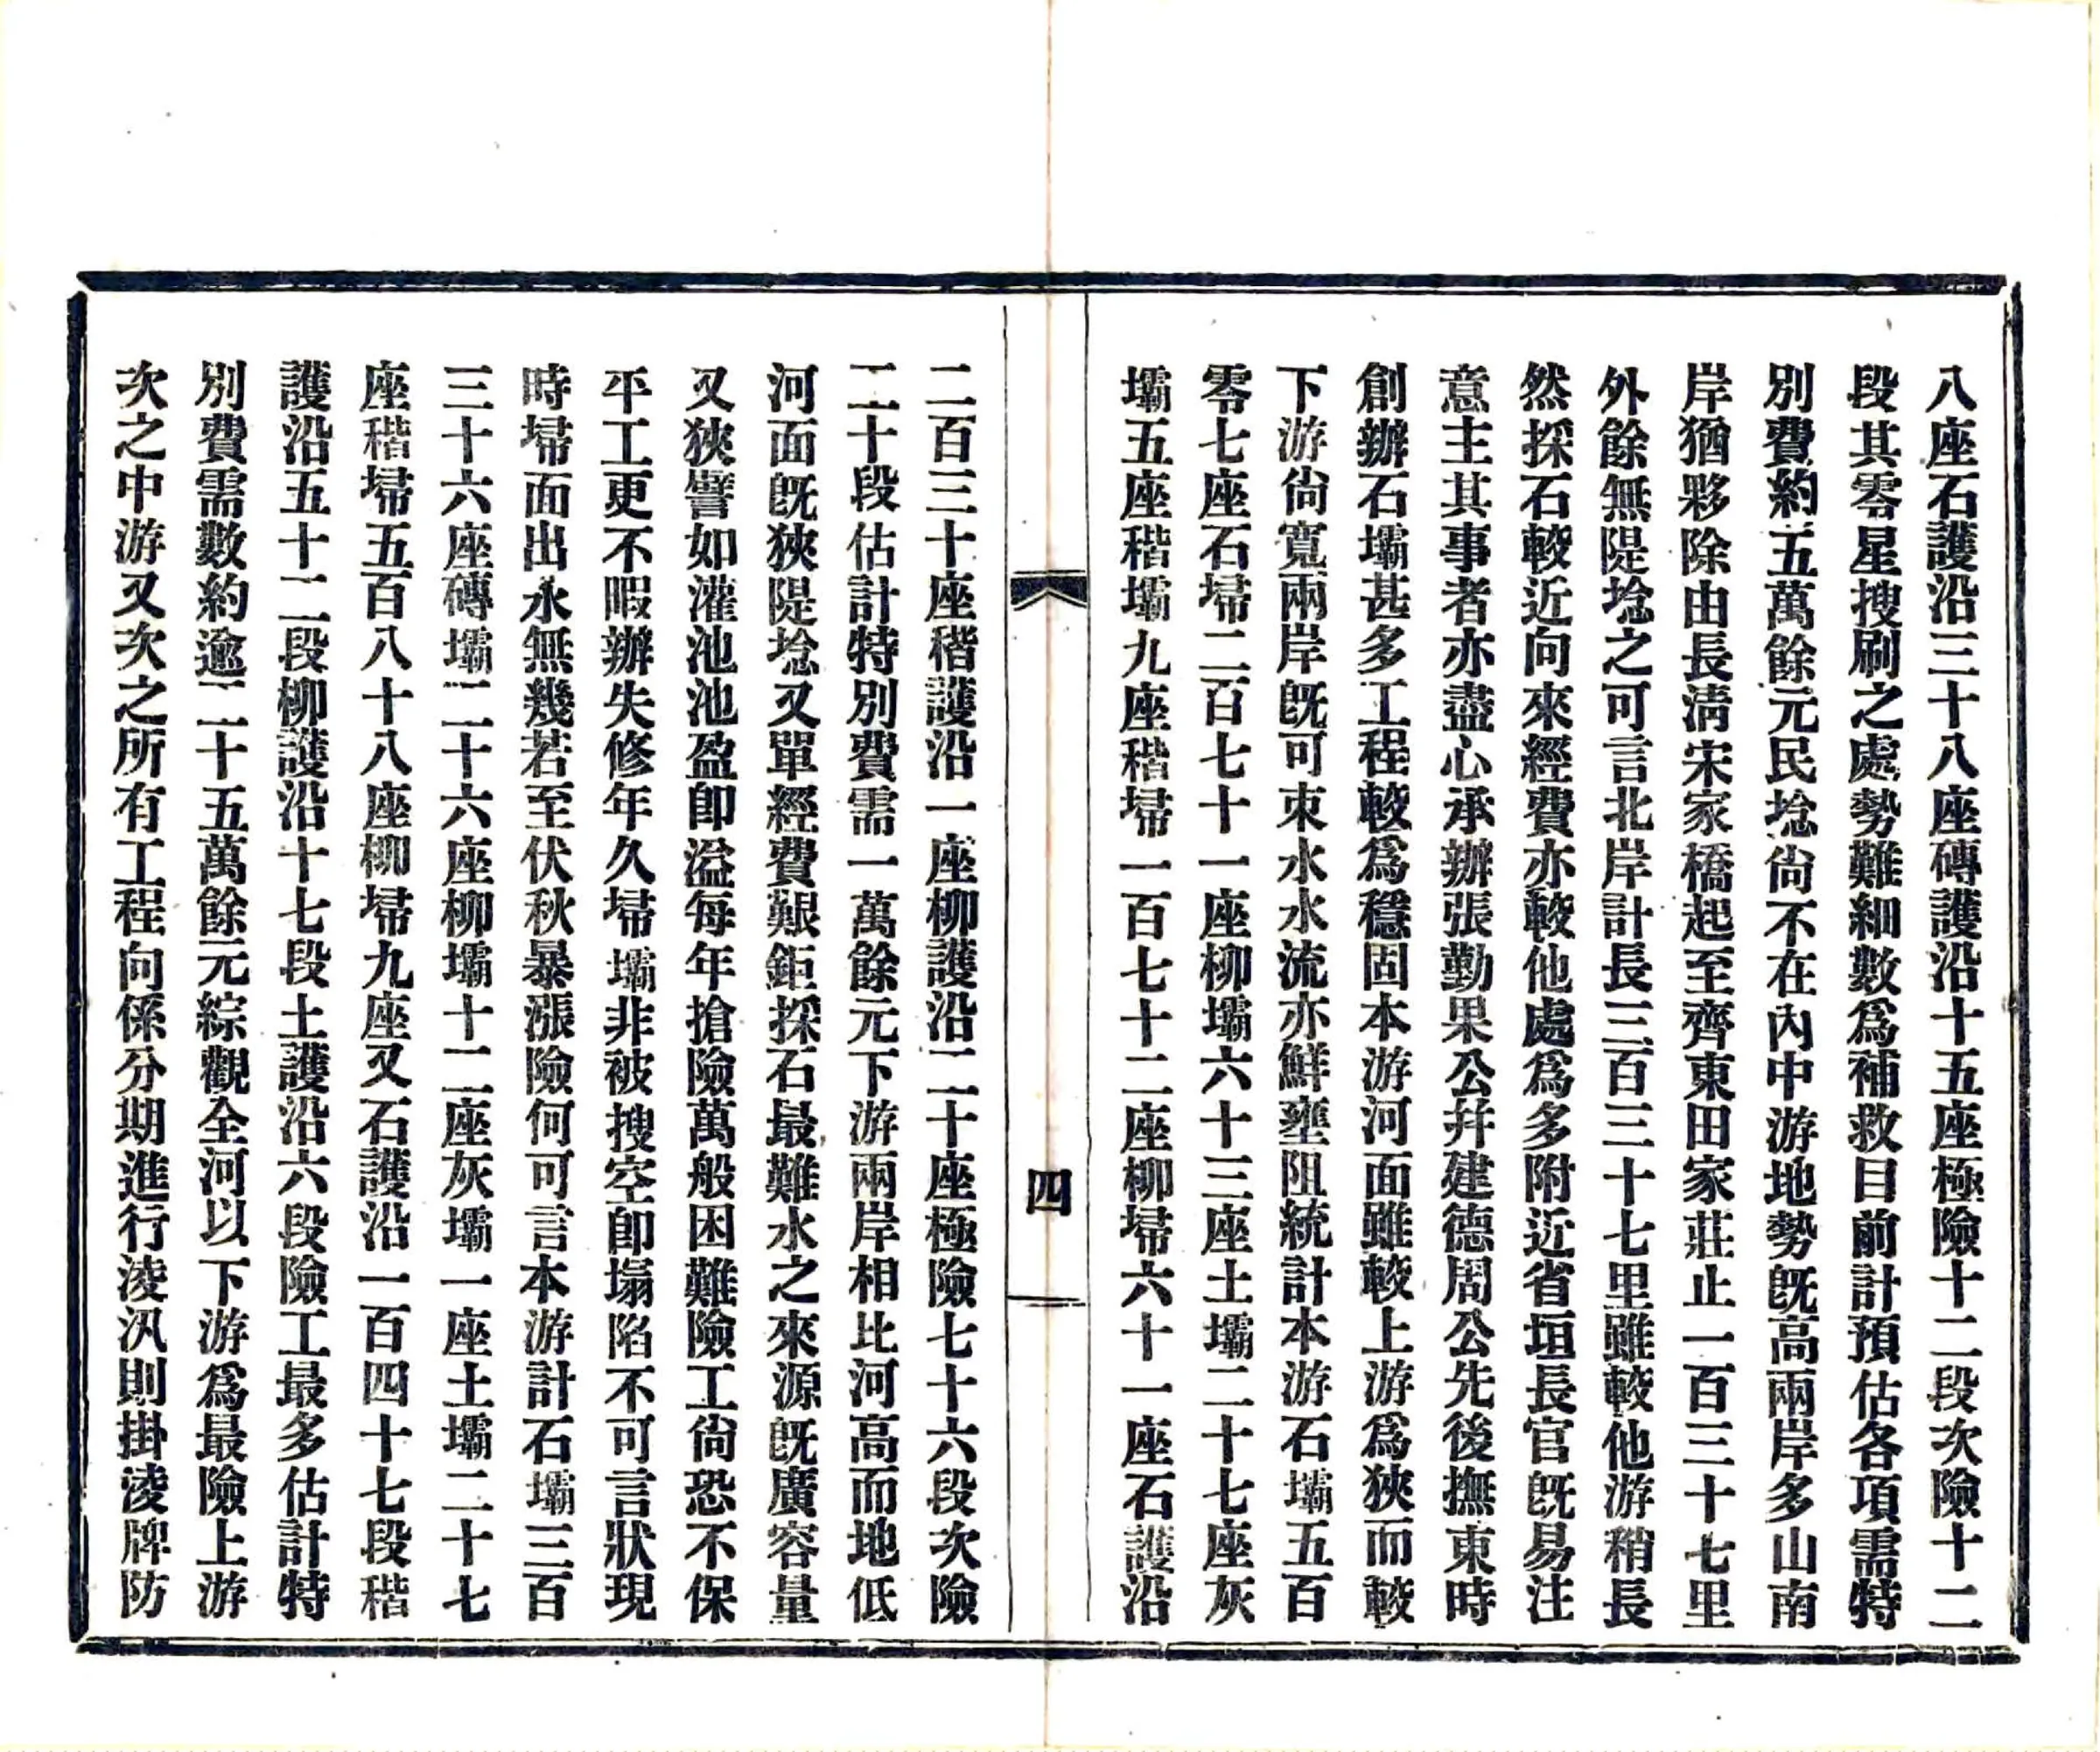 八座石護沿三十八座磚護沿十五座極險十二段次險十二
段其零星搜刷之處勢難細數爲補救目前計預估各項需特
別費約五萬餘元民埝尙不在內中游地勢旣高兩岸多山南
岸猶夥除由長淸宋家橋起至齊東田家莊止一百三十七里
外餘無隄埝之可言北岸計長三百三十七里雖較他游稍長
然採石較近向來經費亦較他處爲多附近省垣長官旣易注
意主其事者亦盡心承辦張勤果公幷建德周公先後撫東時
創辦石壩甚多工程較爲穩固本游河面雖較上游爲狹而較
下游尙寬兩岸旣可束水水流亦鮮壅阻統計本游石壩五百
零七座石埽二百七十一座柳壩六十三座土壩二十七座灰
壩五座稭壩九座稭埽一百七十二座柳埽六十一座石護沿
四
二百三十座稭護沿一座柳護沿二十座極險七十六段次險
二十段估計特別費需一萬餘元下游兩岸相比河高而地低
河面旣狹隄埝又單經費艱鉅採石最難水之來源旣廣容量
又狹譬如灌池池盈卽溢每年搶險萬般困難險工尙恐不保
平工更不暇辦失修年久埽壩非被搜空卽塌陷不可言狀現
時埽面出水無幾若至伏秋暴漲險何可言本游計石壩三百
三十六座磚壩二十六座柳壩十二座灰壩一座土壩二十七
座稭埽五百八十八座柳埽九座又石護沿一百四十七段稭
護沿五十二段柳護沿十七段土護沿六段險工最多估計特
別費需數約逾二十五萬餘元綜觀全河以下游爲最險上游
次之中游又次之所有工程向係分期進行淩汛則掛淩牌防